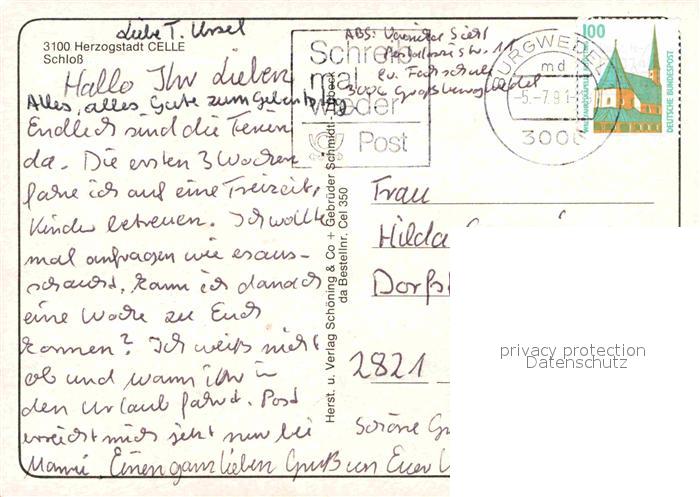 Liebe T. Ursel
3100 Herzogstadt CELLE
Schloß
Hallo Ihr Lieben
Alles, alles Gute zum Geburtstag
Endlich sind die Ferien
da. Die ersten 3 Wochen
fahre ich auf eine Freizeit,
Kinder betreuen. Ich wollte
mal anfragen wie es aus-
schaut, kann ich danach
eine Woche zu Euch
kommen? Ich weiß nicht
ob und wann ihr in
den Urlaub fahrt. Post
erreicht mich jetzt nur bei
Mami. Einen ganz lieben Gruß von Eurer
Herst. u. Verlag Schöning & Co + Gebrüder Schmidt
da Bestellnr. Cel 350
ABS: Veronika
11
Ev. Fachschule
3006 Großburgwedel
Schreib
mal
wieder
Post
BURGWEDEL
md
-5.-7.91-
3006
100
DEUTSCHE BUNDESPOST
Frau
Hilda
Dorfst
2821
Schöne
privacy protection
Datenschutz